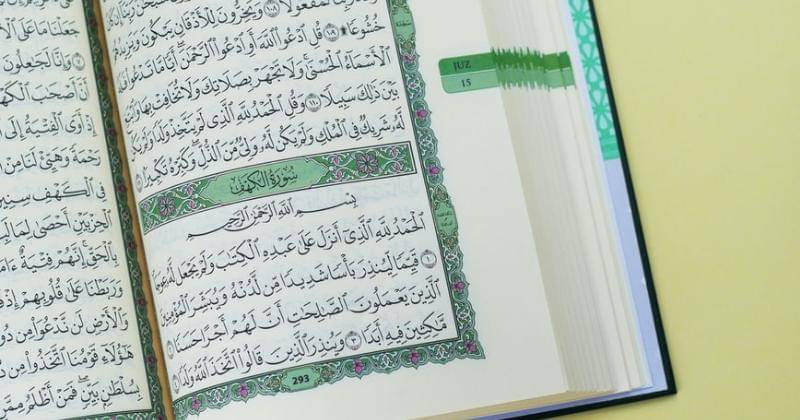 لَمَفْعُولًا ١٠٨ وَيَخِرُّونَ لِلْأَذْقَانِ يَبْكُونَ وَيَزِيدُهُمْ
خُشُوعًا ۩ ١٠٩ قُلِ ٱدْعُوا۟ ٱللَّهَ أَوِ ٱدْعُوا۟ ٱلرَّحْمَٰنَ أَيًّا مَّا تَدْعُوا۟ فَلَهُ
ٱلْأَسْمَآءُ ٱلْحُسْنَىٰ وَلَا تَجْهَرْ بِصَلَاتِكَ وَلَا تُخَافِتْ بِهَا وَٱبْتَغِ
بَيْنَ ذَٰلِكَ سَبِيلًا ١١٠ وَقُلِ ٱلْحَمْدُ لِلَّهِ ٱلَّذِى لَمْ يَتَّخِذْ وَلَدًا وَلَمْ يَكُن
لَّهُۥ شَرِيكٌ فِى ٱلْمُلْكِ وَلَمْ يَكُن لَّهُۥ وَلِىٌّ مِّنَ ٱلذُّلِّ وَكَبِّرْهُ تَكْبِيرًۢا
سُورَةُ ٱلْكَهْفِ
بِسْمِ ٱللَّهِ ٱلرَّحْمَٰنِ ٱلرَّحِيمِ
ٱلْحَمْدُ لِلَّهِ ٱلَّذِىٓ أَنزَلَ عَلَىٰ عَبْدِهِ ٱلْكِتَٰبَ وَلَمْ يَجْعَل لَّهُۥ عِوَجَا
١ قَيِّمًا لِّيُنذِرَ بَأْسًا شَدِيدًا مِّن لَّدُنْهُ وَيُبَشِّرَ ٱلْمُؤْمِنِينَ
ٱلَّذِينَ يَعْمَلُونَ ٱلصَّٰلِحَٰتِ أَنَّ لَهُمْ أَجْرًا حَسَنًا ٢
مَّٰكِثِينَ فِيهِ أَبَدًا ٣ وَيُنذِرَ ٱلَّذِينَ قَالُوا۟ ٱتَّخَذَ ٱللَّهُ وَلَدًا ٤
293
JUZ
15
جَعَلْنَا مَا عَلَى
وَإِنَّا لَجَٰعِلُونَ
أَنَّ أَصْحَٰبَ
إِذْ أَوَى ٱلْفِتْيَةُ إِلَى
رَحْمَةً وَهَيِّئْ لَنَا مِنْ
فِى ٱلْكَهْفِ سِنِينَ
ٱلْحِزْبَيْنِ أَحْصَىٰ
بِٱلْحَقِّ إِنَّهُمْ فِتْيَةٌ
وَرَبَطْنَا عَلَىٰ قُلُوبِهِمْ إِذْ
وَٱلْأَرْضِ لَن نَّدْعُوَا۟ مِن
هَٰٓؤُلَآءِ قَوْمُنَا ٱتَّخَذُوا۟ مِن
بِسُلْطَٰنٍۭ بَيِّنٍ فَمَنْ أَظْلَمُ